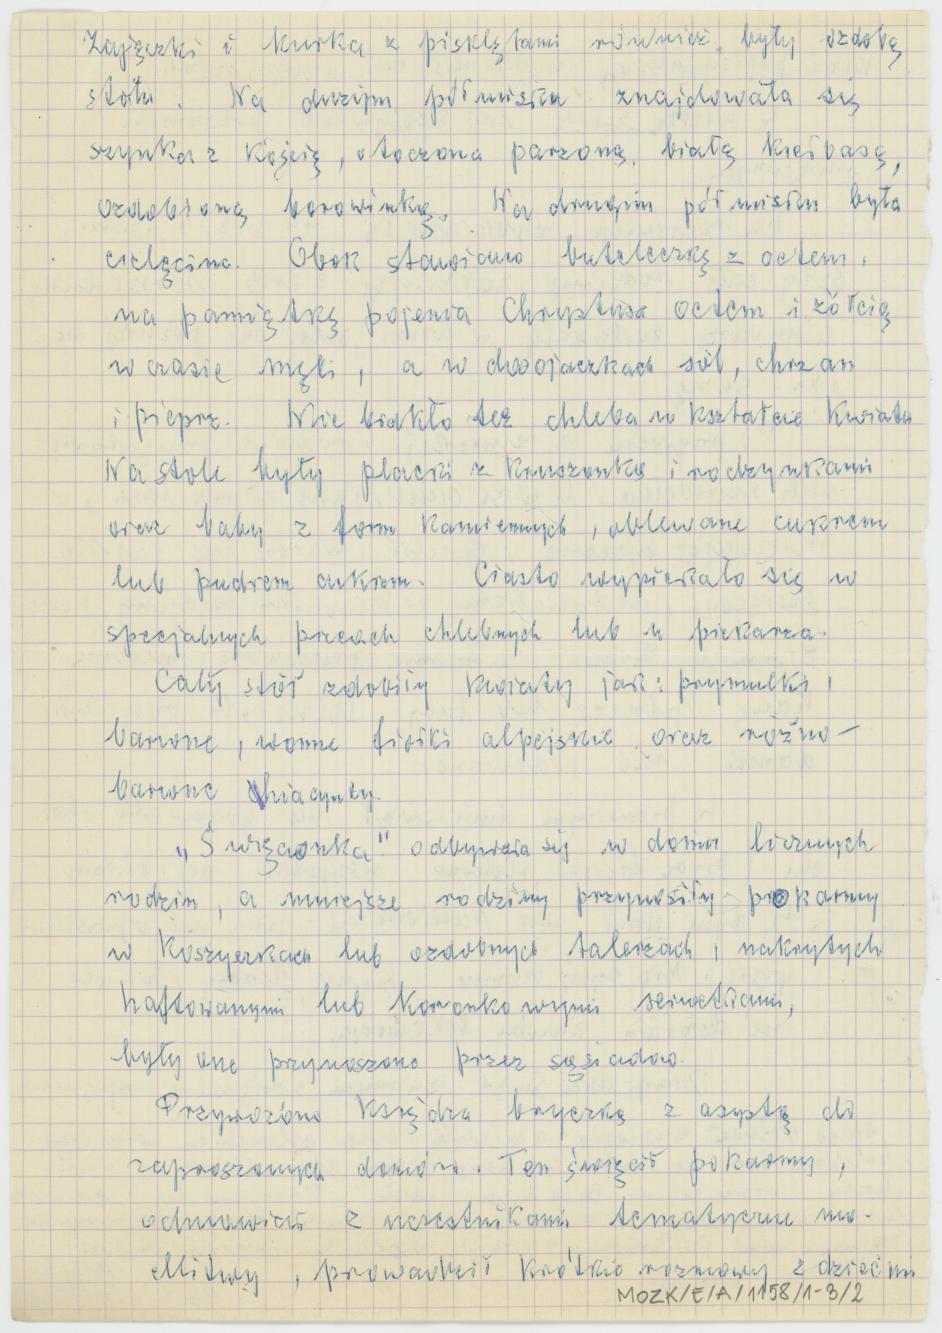 Zajączki i kurka z pisklętami również były ozdobą
stołu. Na dużym półmisku znajdowała się
szynka z kością, otoczona parzoną, białą kiełbasą,
ozdobioną borowinką. Na drugim półmisku była
cielęcina. Obok stawiano buteleczkę z octem,
na pamiątkę pojenia Chrystusa octem i żółcią
w czasie męki, a w dwojaczkach sól, chrzan
i pieprz. Nie brakło też chleba w kształcie kwiatu
Na stole były placki z kruszonką i rodzynkami
oraz baby z form kamiennych, oblewane cukrem
lub pudrem cukrem. Ciasto wypiekało się w
specjalnych piecach chlebnych lub u piekarza.
Cały stół zdobiły kwiaty jak: prymulki,
barwne, wonne fiołki alpejskie oraz różno-
barwne hiacynty.
„Święconka" odbywała się w domu licznych
rodzin, a mniejsze rodziny przynosiły pokarmy
w koszyczkach lub ozdobnych talerzach, nakrytych
haftowanymi lub koronkowymi serwetkami,
były one przynoszone przez sąsiadów.
Przywożono księdza bryczką z asystą do
zaproszonych domów. Ten święcił pokarmy,
odmawiał z uczestnikami tematyczne mo-
dlitwy, prowadził krótkie rozmowy z dziećmi
MOZK/E/A/1158/1-3/2